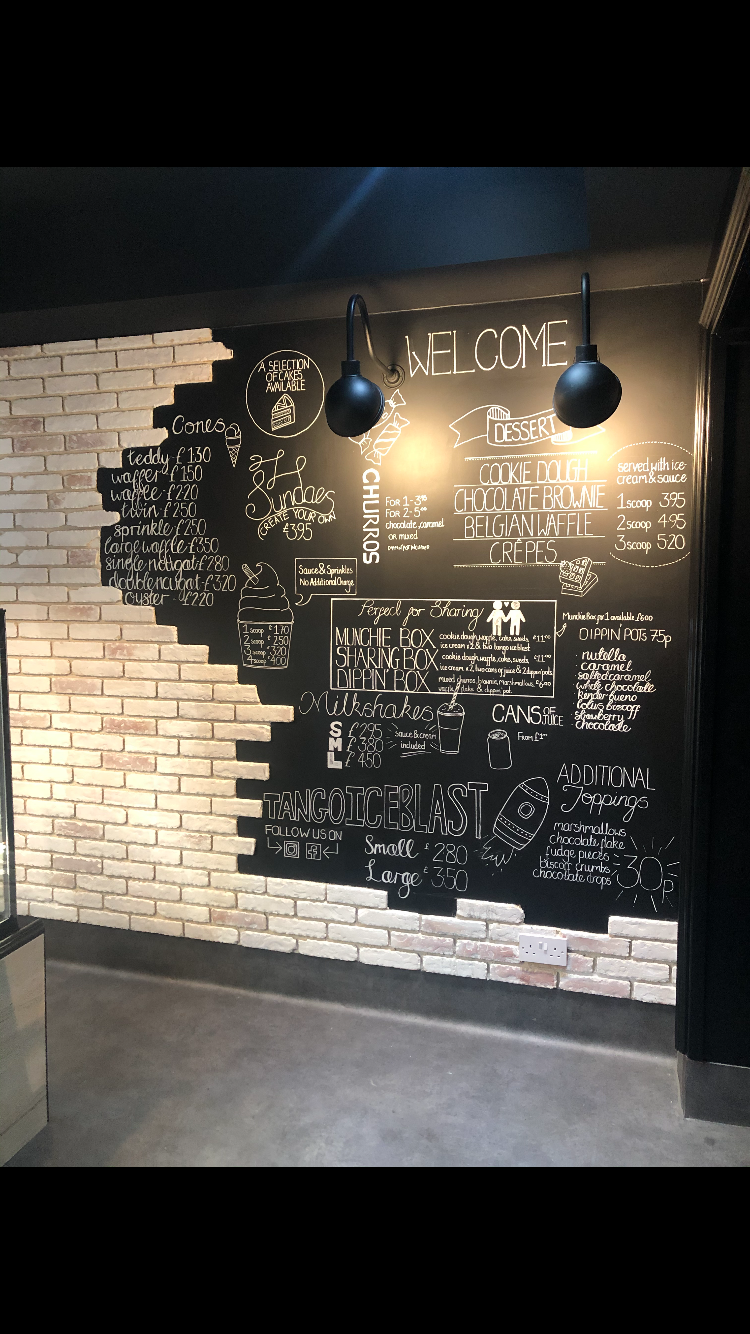 WELCOME
A SELECTION
OF CAKES
AVAILABLE
Cones
teddy £130
waffer £150
waffle £220
twin £250
sprinkle £250
large waffle £350
single nougat £280
double nougat £320
oyster £220
Sundaes
CREATE YOUR OWN
£395
Sauce & Sprinkles
No Additional Charge
1 scoop £170
2 scoop £250
3 scoop £320
4 scoop £400
CHURROS
FOR 1-3
FOR 2-5
chocolate, caramel
or mixed
DESSERT
COOKIE DOUGH
CHOCOLATE BROWNIE
BELGIAN WAFFLE
CRÊPES
served with ice-
cream & sauce
1 scoop 395
2 scoop 495
3 scoop 520
Perfect for Sharing
MUNCHIE BOX cookie dough, waffle, cake, sweets,
ice cream x2 & two tango ice blast
SHARING BOX cookie dough, waffle, cake, sweets,
ice cream x2, two cans of juice & 2 dippin' pots
DIPPIN' BOX mixed churros, brownie, marshmallow,
waffle, flake & dippin' pot.
Munchie Box for 1 available £6.00
DIPPIN' POTS 75p
nutella
caramel
salted caramel
white chocolate
kinder bueno
lotus biscoff
strawberry
chocolate
Milkshakes
S £295
M £380
L £450
sauce & cream
included
CANS OF JUICE
From £1
TANGO ICE BLAST
FOLLOW US ON
Small £280
Large £350
ADDITIONAL
Toppings
marshmallows
chocolate flake
fudge pieces
biscoff crumbs
chocolate drops
30P